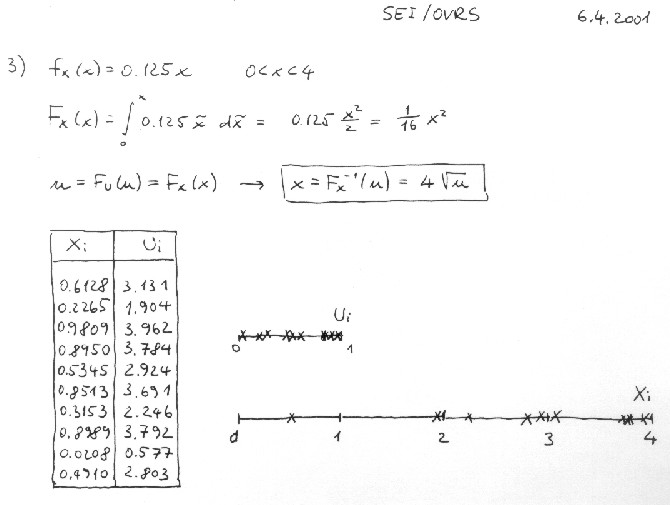 SEI/OVRS 6.4.2001
3) fx(x) = 0.125x 0<x<4
Fx(x) = ∫₀ˣ 0.125 x̃ dx̃ = 0.125 x²/2 = 1/16 x²
u = Fᵤ(u) = Fx(x) → x = Fx⁻¹(u) = 4√u
Xi Ui
0.6128 3.131
0.2265 1.904
0.9809 3.962
0.8950 3.784
0.5345 2.924
0.8513 3.691
0.3153 2.246
0.8989 3.792
0.0208 0.577
0.4910 2.803
Ui
0 1
Xi
0 1 2 3 4